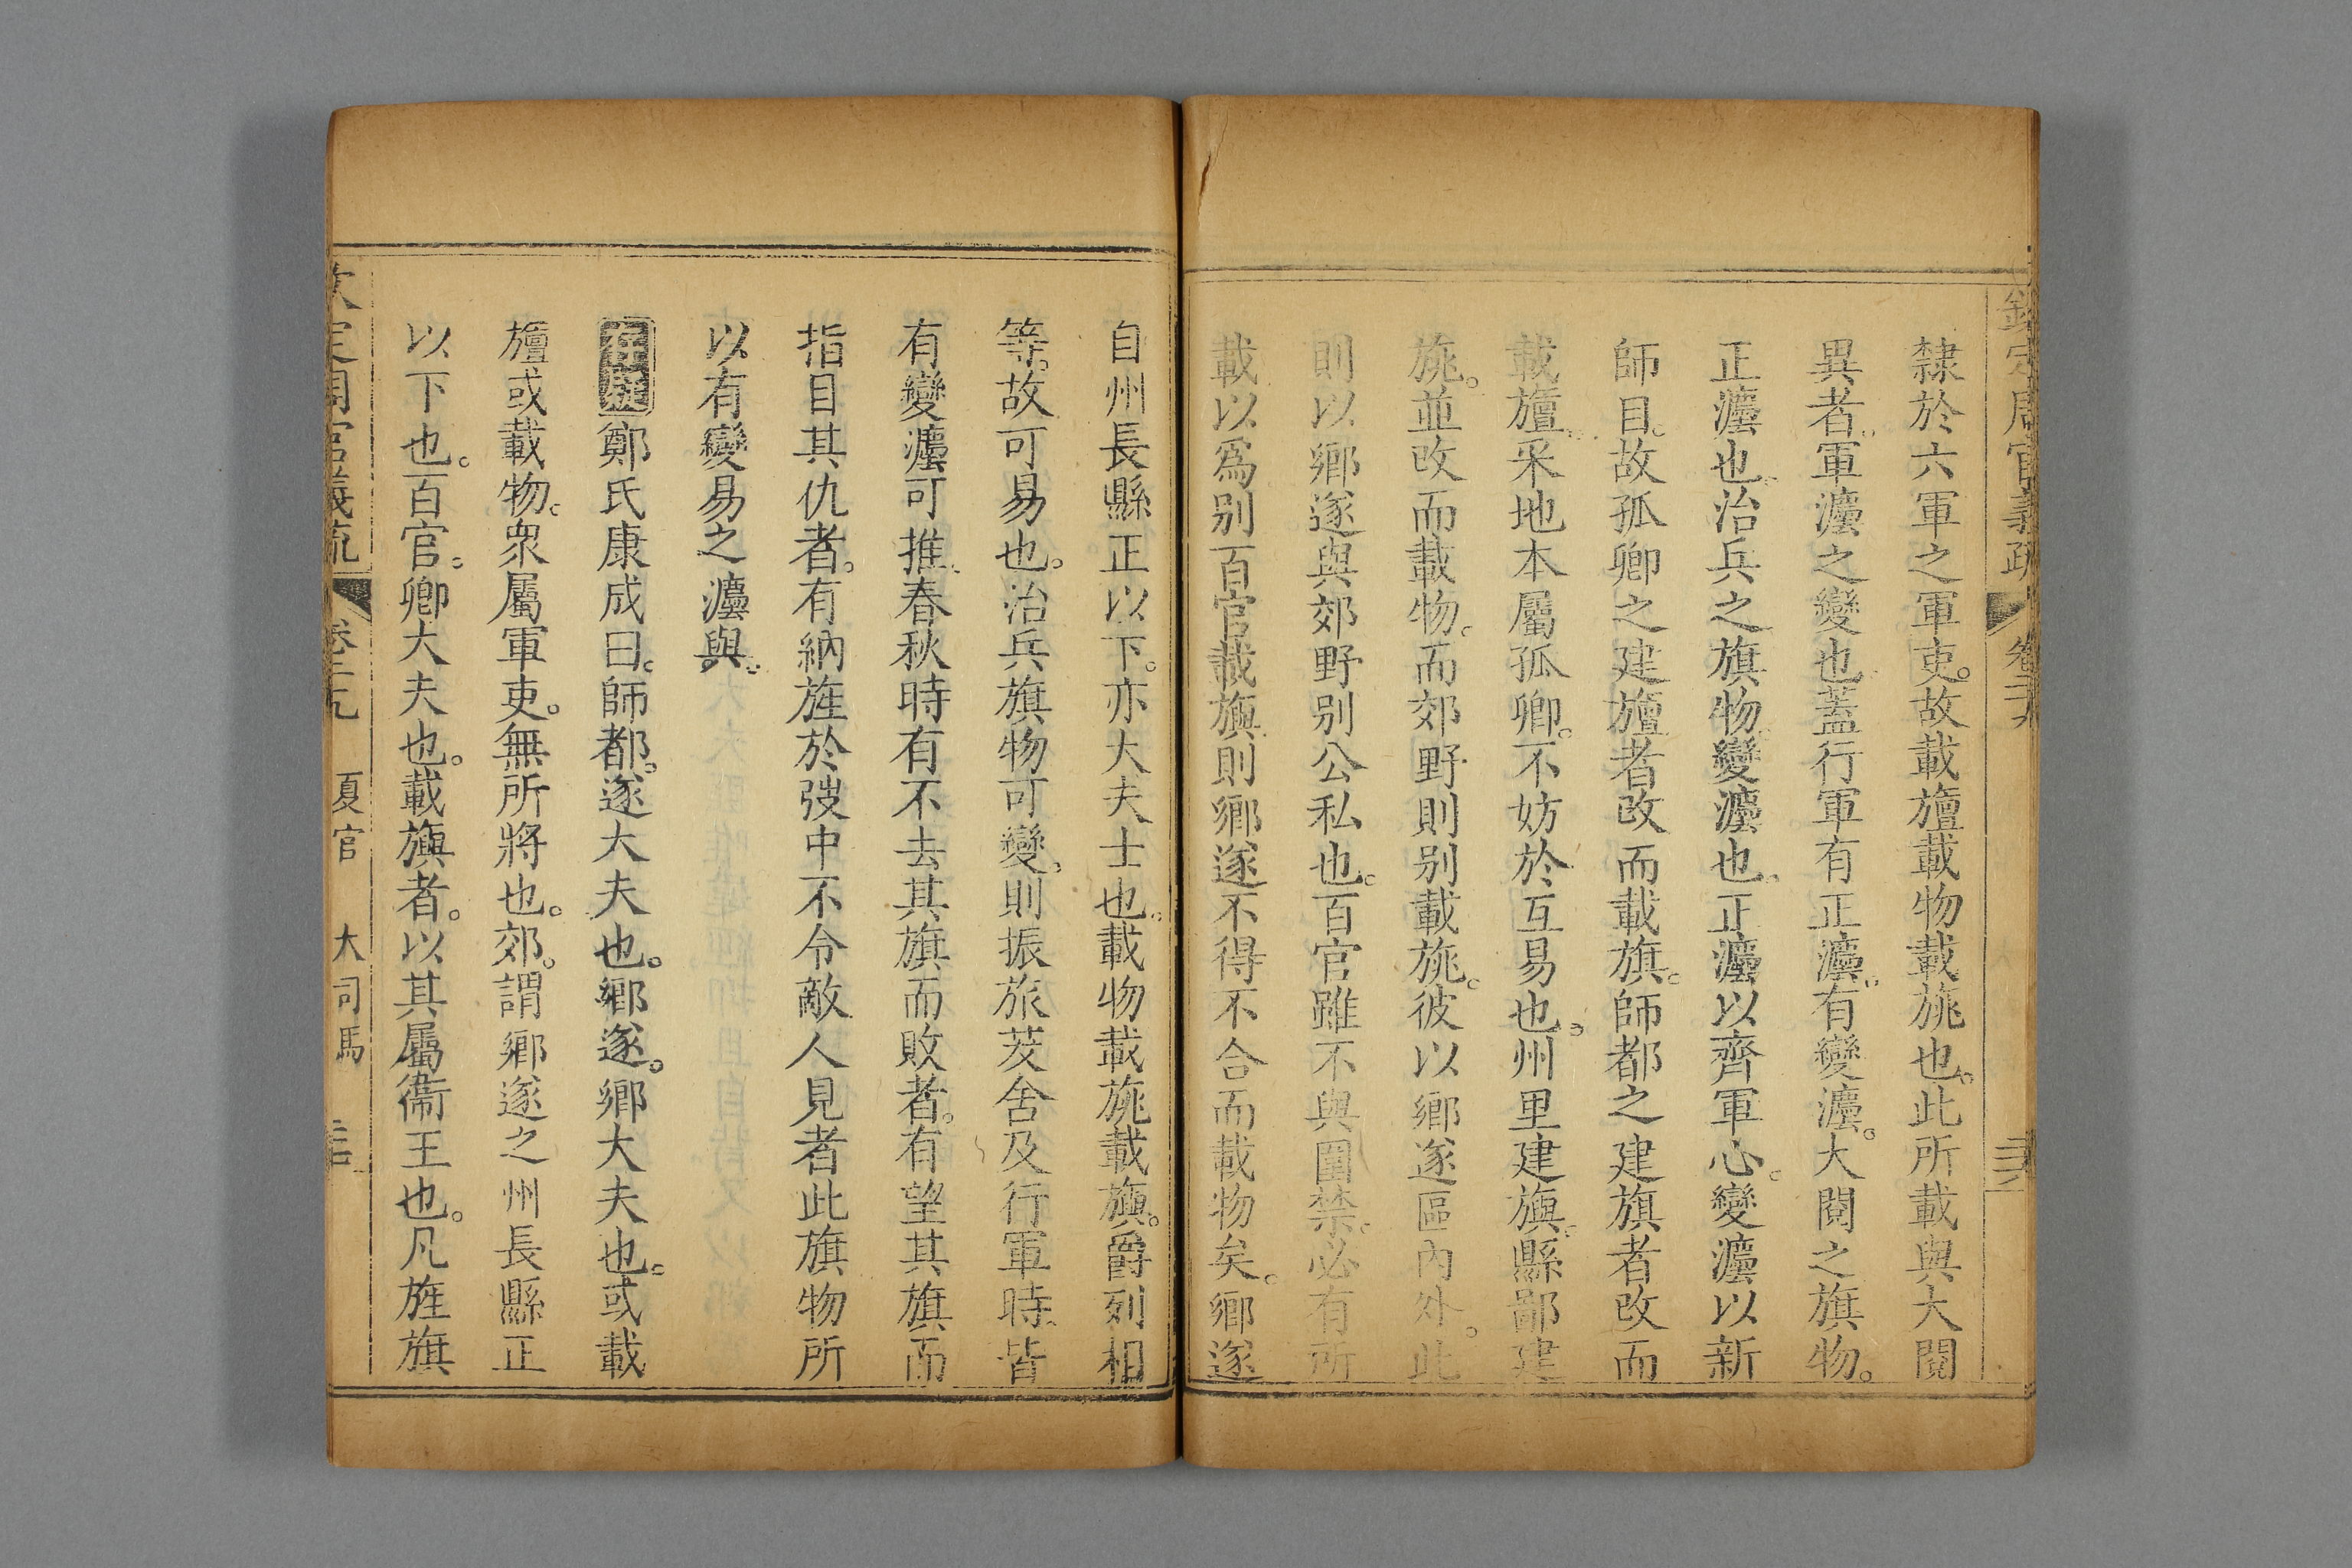 欽定周官義疏 卷二十九 三十八
隸於六軍之軍吏。故載旜載物載旐也。此所載與大閱
異者。軍灋之變也。蓋行軍有正灋。有變灋。大閱之旗物。
正灋也。治兵之旗物。變灋也。正灋以齊軍心。變灋以新
師目。故孤卿之建旜者改而載旗。師都之建旗者改而
載旜。采地本屬孤卿。不妨於互易也。州里建旟。縣鄙建
旐。並改而載物。而郊野則別載旐。彼以鄉遂區內外。此
則以鄉遂與郊野別公私也。百官雖不與圍禁。必有所
載以爲別。百官載旟則鄉遂不得不合而載物矣。鄉遂
自州長縣正以下。亦大夫士也。載物載旐載旟。爵列相
等。故可易也。治兵旗物可變。則振旅茇舍及行軍時。皆
有變灋可推。春秋時有不去其旗而敗者。有望其旗而
指目其仇者。有納旌於弢中不令敵人見者此旗物所
以有變易之灋與。
鄭氏康成曰。師都。遂大夫也。鄉遂。鄉大夫也。或載
旜或載物。衆屬軍吏。無所將也。郊。謂鄉遂之州長縣正
以下也。百官。卿大夫也。載旟者。以其屬衞王也。凡旌旗
欽定周官義疏 卷二十九 夏官 大司馬